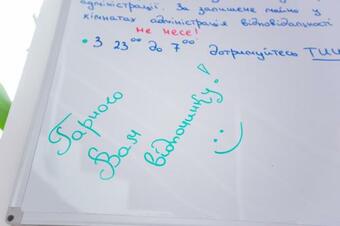 адміністрації. За залишене майно у
кімнатах адміністрація відповідальності
не несе!
• З 23⁰⁰ до 7⁰⁰ дотримуйтесь ТИШ
Гарного
Вам
відпочинку!